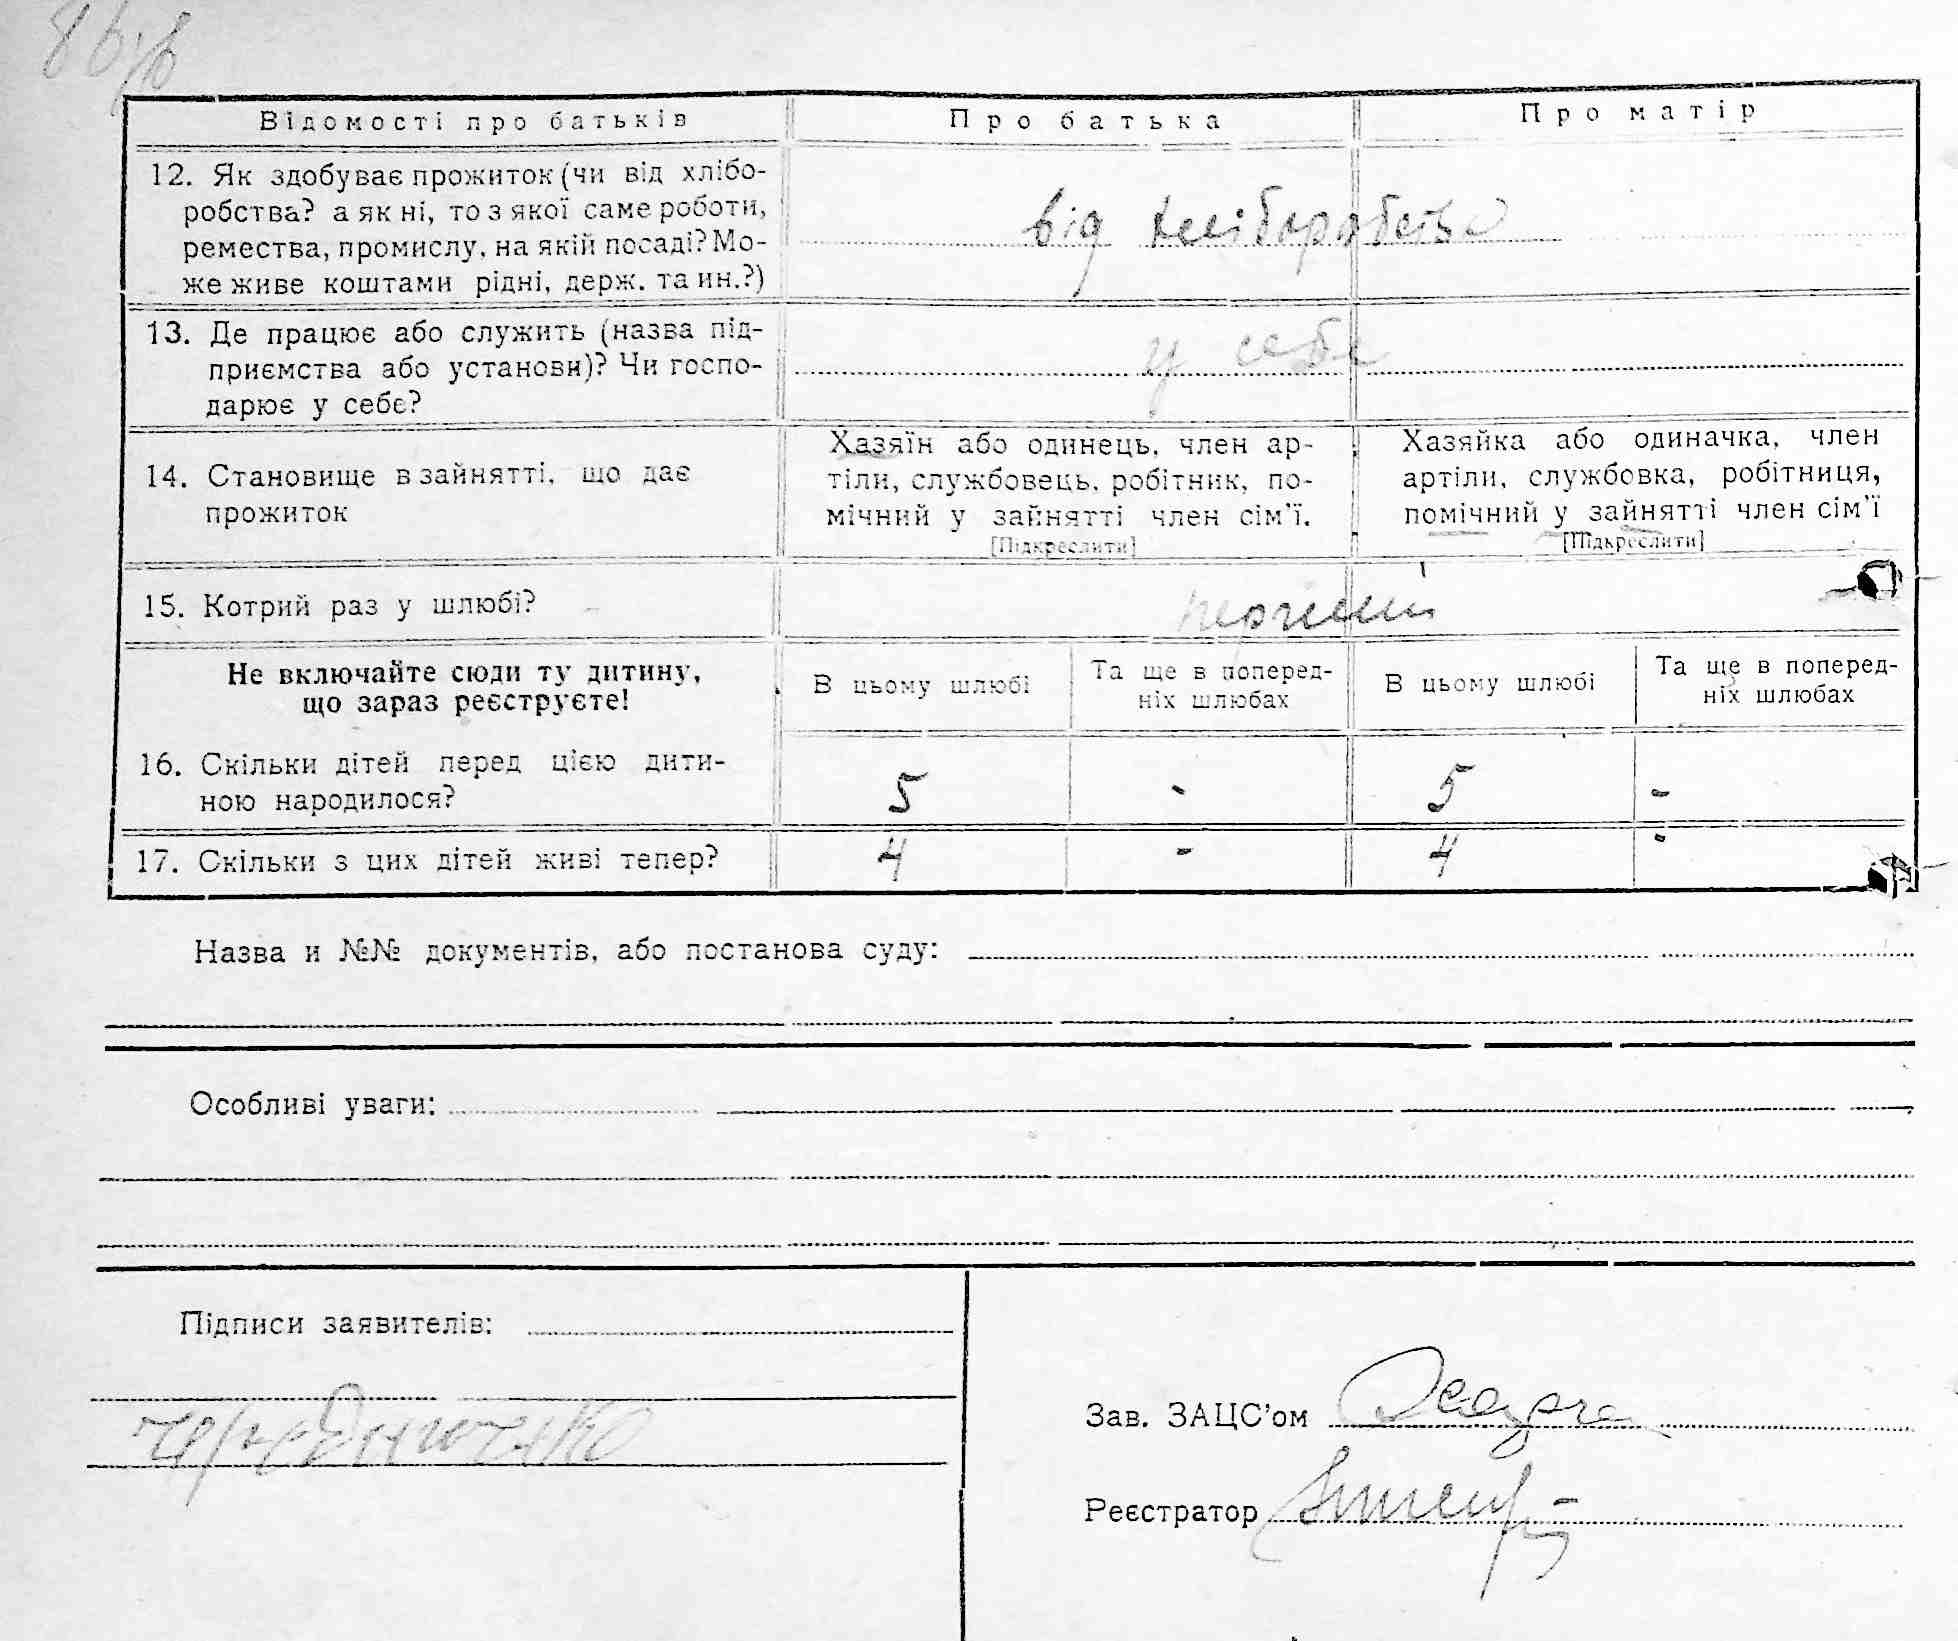 Відомості про батьків Про батька Про матір
12. Як здобуває прожиток (чи від хлібо-
робства? а як ні, то з якої саме роботи,
ремества, промислу, на якій посаді? Мо-
же живе коштами рідні, держ. та ин.?)
від хліборобства
13. Де працює або служить (назва під-
приємства або установи)? Чи госпо-
дарює у себе?
у себе
14. Становище в зайнятті, що дає
прожиток
Хазяїн або одинець, член ар-
тіли, службовець, робітник, по-
мічний у зайнятті член сім'ї.
[Підкреслити]
Хазяйка або одиначка, член
артіли, службовка, робітниця,
помічний у зайнятті член сім'ї
[Підкреслити]
15. Котрий раз у шлюбі?
перший
Не включайте сюди ту дитину,
що зараз реєструєте!
В цьому шлюбі
Та ще в поперед-
ніх шлюбах
В цьому шлюбі
Та ще в поперед-
ніх шлюбах
16. Скільки дітей перед цією дити-
ною народилося?
5 - 5 -
17. Скільки з цих дітей живі тепер? 4 - 4 -
Назва и №№ документів, або постанова суду:
Особливі уваги:
Підписи заявителів:
Зав. ЗАЦС'ом
Реєстратор